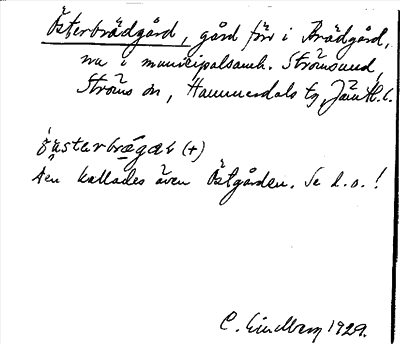 Österbrädgård, gård förr i Brädgård,
nu i municipalsamh. Strömsund,
Ströms sn, Hammerdals tg, Jämtl. l.
Den kallades även Östgården. Se d.o.!
C. Lindberg 1929.